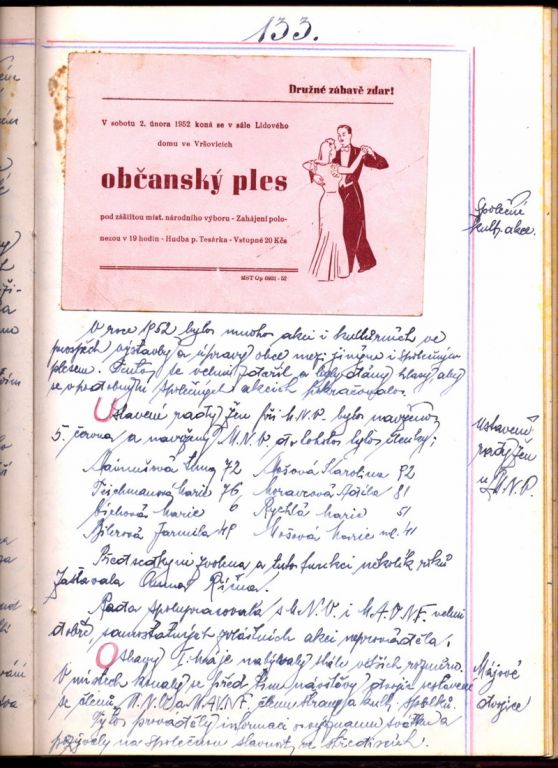 133.
Družné zábavě zdar!
V sobotu 2. února 1952 koná se v sále Lidového
domu ve Vršovicích
občanský ples
pod záštitou míst. národního výboru - Zahájení polo-
nezou v 19 hodin - Hudba p. Tesárka - Vstupné 20 Kčs
MST Op 6921 - 52
Společné
kult. akce.
V roce 1952 bylo mnoho akcí i kulturních ve
prospěch výstavby a úpravy obce mezi jinými i společným
plesem. Tento se velmi zdařil a byly hlasy aby
se v podobných společných akcích pokračovalo.
Ustavení rady žen při M.N.V. bylo navrženo
5. června a M.N.V. do tohoto členky:
Ustavení
rady žen
u M.N.V.
Anna 72 Mošová Karolina 92
Tischmanová Marie 76, Moravcová Adéla 81
Marie 6 Rychlá Marie 51
Jarmila 49 Mošová Marie ml. 41
Předsedkyní zvolena a tuto funkci několik roků
zastávala Anna Říhová.
Rada spolupracovala s M.N.V. i M.A.V.N.F. velmi
dobře, samostatných zvláštních akcí neprováděla.
Oslavy I. máje nabývaly stále větších rozměrů.
V místech konaly se před tím návštěvy dvojic sestavené
ze členů M.N.V. a M.A.V.N.F. členů stran a kult. spolků.
Tyto prováděly informaci o významu svátku a
pozývaly na společnou slavnost ve střediscích.
Májové
dvojice